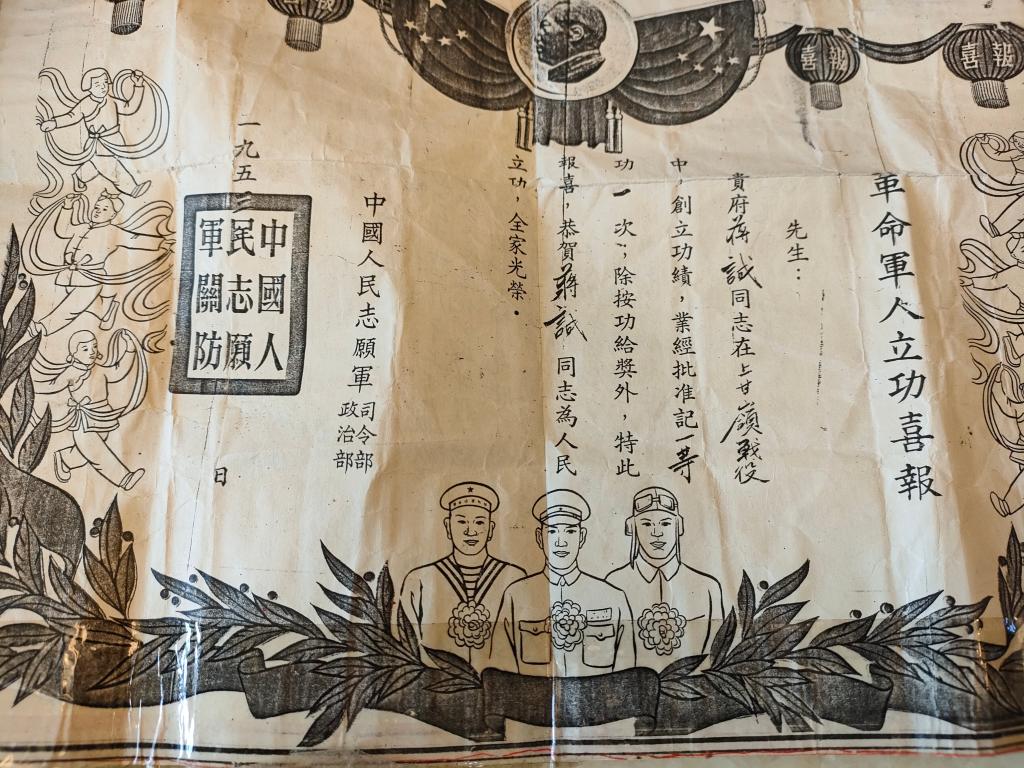 喜報
喜報
革命軍人立功喜報
先生：
貴府蔣誠同志在上甘嶺戰役
中，創立功績，業經批准記一等
功一次；除按功給獎外，特此
報喜，恭賀蔣誠同志為人民
立功，全家光榮．
中國人民志願軍司令部
政治部
一九五三
日
中國人
民志願
軍關防